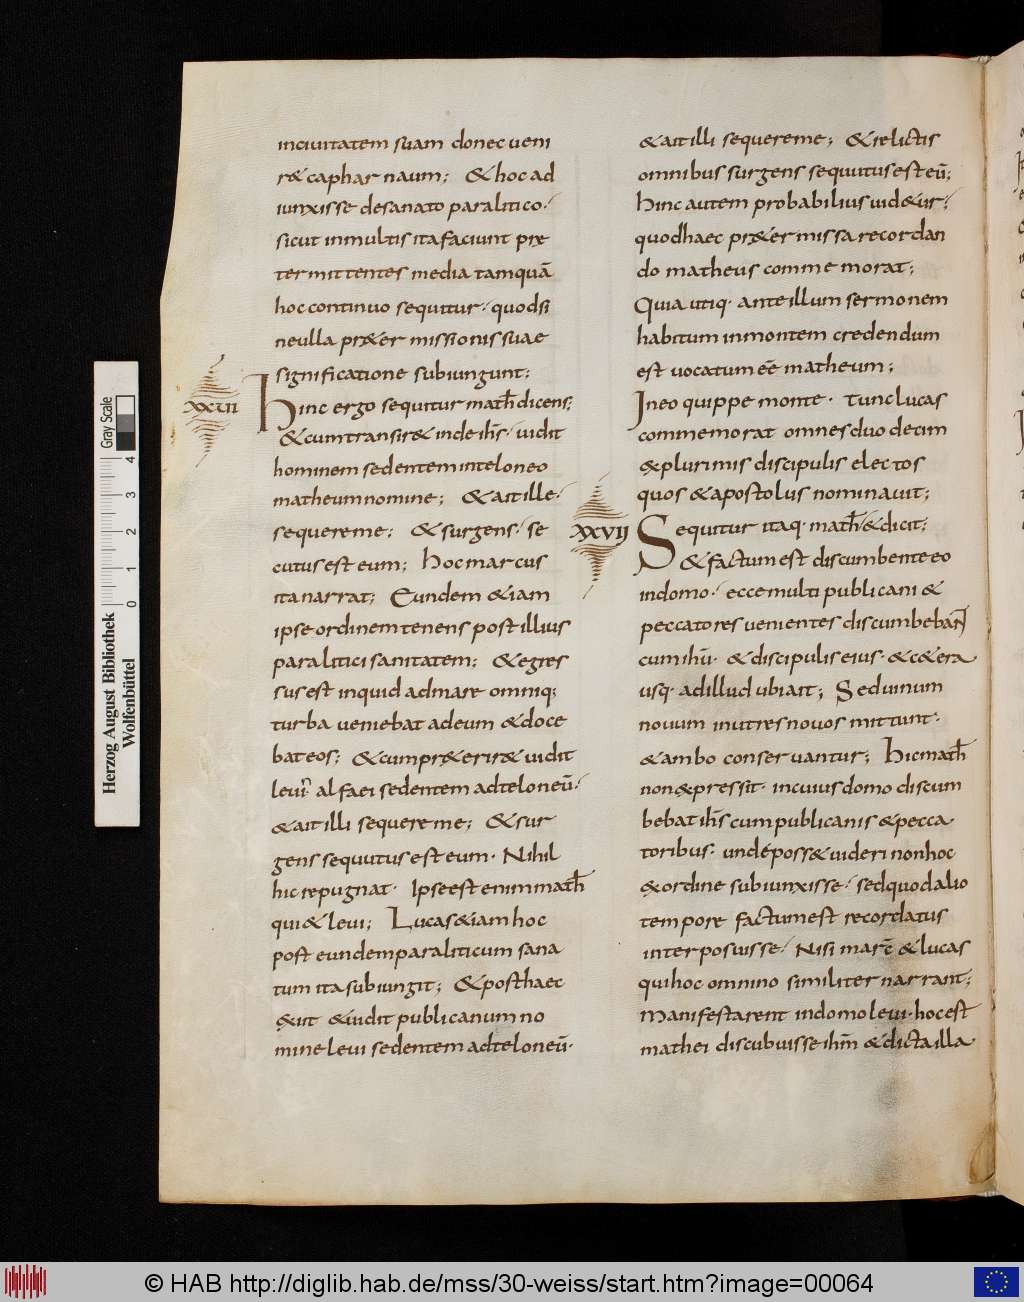 inciuitatem suam donec ueni
r&caphar naum; & hoc ad
iunxisse desanato paralitico·
sicut inmultis itafaciunt prę
termittentes media tamquā
hoc continuo sequitur· quodsi
neulla pr&er missionis suae
significatione subiungunt;
XXVII
hinc ergo sequitur math dicens;
&cumtransir& inde ihs· uidit
hominem sedentem inteloneo
matheum nomine; & ait ille·
sequereme; & surgens· se
cutus est eum; hoc marcus
ita narrat; Eundem &iam
ipse ordinem tenens post illius
paralitici sanitatem; & egres
sus est inquid ad mare omnisq;
turba ueniebat ad eum & doce
bat eos; & cum pr&erir& uidit
leui alfaei sedentem adteloneū·
& ait illi sequere me; & sur
gens sequutus est eum· Nihil
hic repugnat· Ipse est enim math
qui & leui; Lucas &iam hoc
post eundem paraliticum sana
tum ita subiungit; & post haec
exiit & uidit publicanum no
mine leui sedentem adteloneū·
& ait illi sequereme; & relictis
omnibus surgens sequutus est eū;
hinc autem probabilius uid&ur·
quod haec pr&er missa recordan
do matheus commemorat;
Quia utiq· ante illum sermonem
habitum in montem credendum
est uocatum eē matheum;
In eo quippe monte· tunc lucas
commemorat omnes duodecim
explurimis discipulis electos
quos & apostolus nominauit;
XXVII
Sequitur itaq· math & dicit;
& factum est discumbente eo
in domo· ecce multi publicani &
peccatores uenientes discumbebant
cum ihū· & discipulis eius· & c&era
usq· ad illud ubi ait; Sed uinum
nouum in utres nouos mittunt·
& ambo conseruantur; hic math
non expressit· in cuius domo discum
bebat ihs cum publicanis & pecca
toribus· unde poss& uideri non hoc
ex ordine subiunxisse· sed quod alio
tempore factum est recordatus
interposuisse· Nisi marc & lucas
qui hoc omnino similiter narrant;
manifestarent in domo leui· hoc est
mathei discubuisse ihm & dicta illa·
Herzog August Bibliothek
Wolfenbüttel
Gray Scale
0 1 2 3 4
© HAB http://diglib.hab.de/mss/30-weiss/start.htm?image=00064